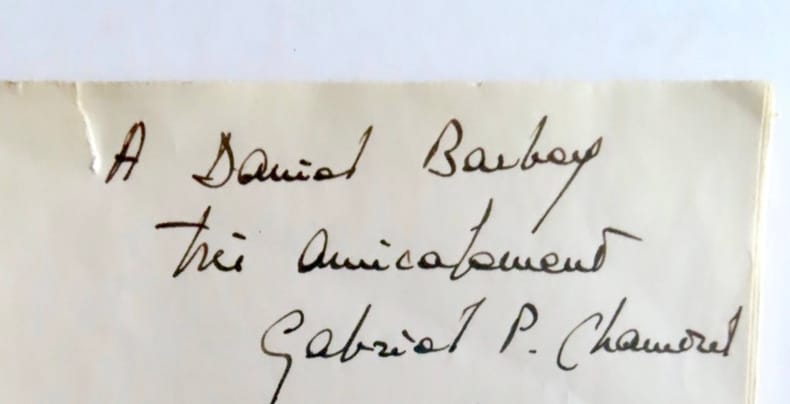 A Daniel Barbey
très amicalement
Gabriel P. Chamorel